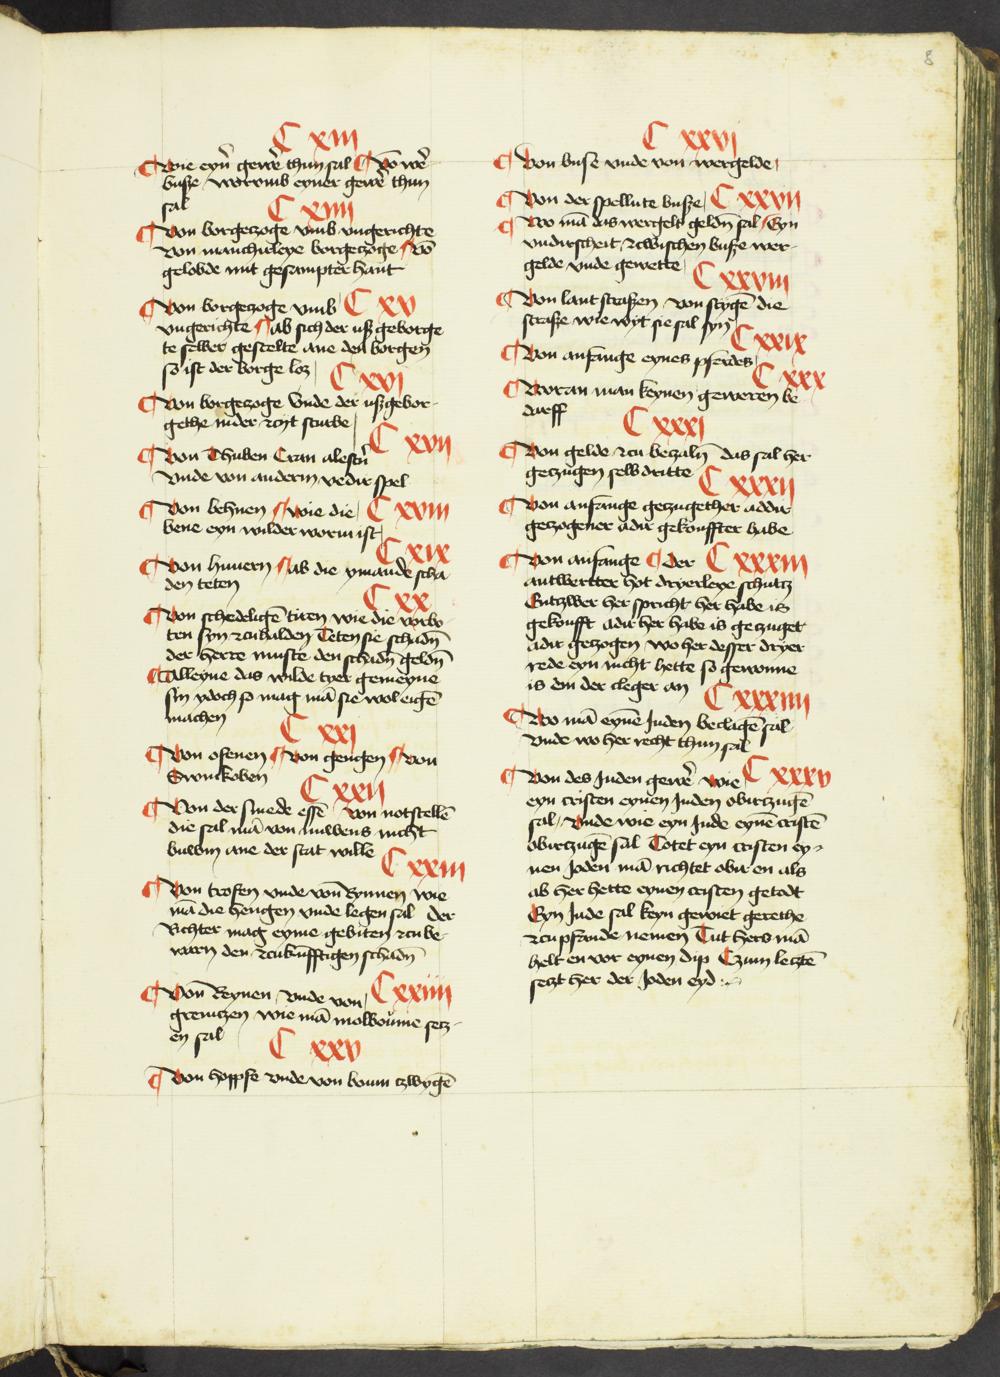 8
C xiii
¶ Wie eyn̄ gewe᷑ thun sal ¶ Vō we᷑
busze worumb eyner gewe᷑ thun
sal
C xiiii
¶ Von borgeczoge vmb vngerichte
von manchirleye borgeczoge ¶ Vō
gelobde mit gesampter hant
¶ Von borgeczoge vmb C xv
vngerichte ¶ ab sich der usz geborge
te selber gestelte ane den borgen
so ist der borge loz
C xvi
¶ Von borgeczoge Vnde der usz gebor-
gethe inder czyt sturbe
C xvii
¶ Von Thuben Cran
vnde von anderm vedir spel
¶ Von behnen ¶ wie die C xviii
bene eyn wilder worm ist
C xix
¶ Von hunern ¶ ab die ymande scha
den teten
C xx
¶ Von schedeligē tiren wie die vorbo-
ten syn czu halden Teten sie schadn̄
der herre muste den schadn̄ geldn̄
¶ Alleyne das wilde tyer gemeyne
sin ydoch so mag mā sie wol eigē
machen
C xxi
¶ Von ofenen ¶ Von gengen ¶ von
Swinkoben
C xxii
¶ Von der smede essē von notstellē
die sal mā von nuwens nicht
buwin ane der stat wille
C xxiii
¶ Von trofen vnde von Rynnen wie
mā die hengen vnde legen sal der
Richter mag eyme gebiten czu be-
warn den czukunfftigen schadn̄
¶ Von Reynen vnde von C xxiiii
grenitzen wie mā molboume setz-
en sal
C xxv
¶ Von hoppfe vnde von boum czwygē
C xxvi
¶ Von buse vnde von wergelde
¶ Von der spellute busze C xxvii
¶ Wo mā das wergelt geldn̄ sal Eyn
vndirscheit czwischen busze wer-
gelde vnde gewette
C xxviii
¶ Von lantstraszen von stygē die
strasze wie wyt sie sal syn
C xxix
¶ Von anfange eynes pferdes
C xxx
¶ Woran man keynen geweren be
darff
C xxxi
¶ Von gelde czu beczaln̄ das sal her
geczugen selbdritte
C xxxii
¶ Von anfange geczugether addir
geczogener adir gekouffter habe
¶ Von anfange ¶ Der C xxxiii
antwertter hot dryerleye schutz
Entzwer her spricht her habe is
gekoufft adir her habe is geczuget
adir geczogen wo her desser dryer
rede eyn nicht hette so gewonne
is em der cleger an
C xxxiiii
¶ Wo mā eynē Juden beclagē sal
vnde wo her recht thun sal
¶ Von des Juden gewe᷑ wie C xxxv
eyn cristen eynen Juden obirczugē
sal Vnde wie eyn Jude eynē cristē
obirczugē sal Totet eyn cristen ey-
nen Joden mā richtet obir en als
ab her hette eynen cristen getodt
Eyn Jude sal keyn gewiet gerethe
czu pfande nemen Tut hers mā
helt en vor eynen dip Czum lecztē
setzt her der Joden eyd